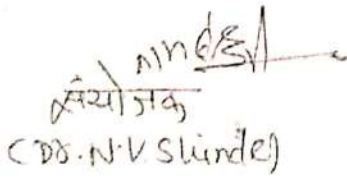 संयोजक
(Dr. N.V Shinde)